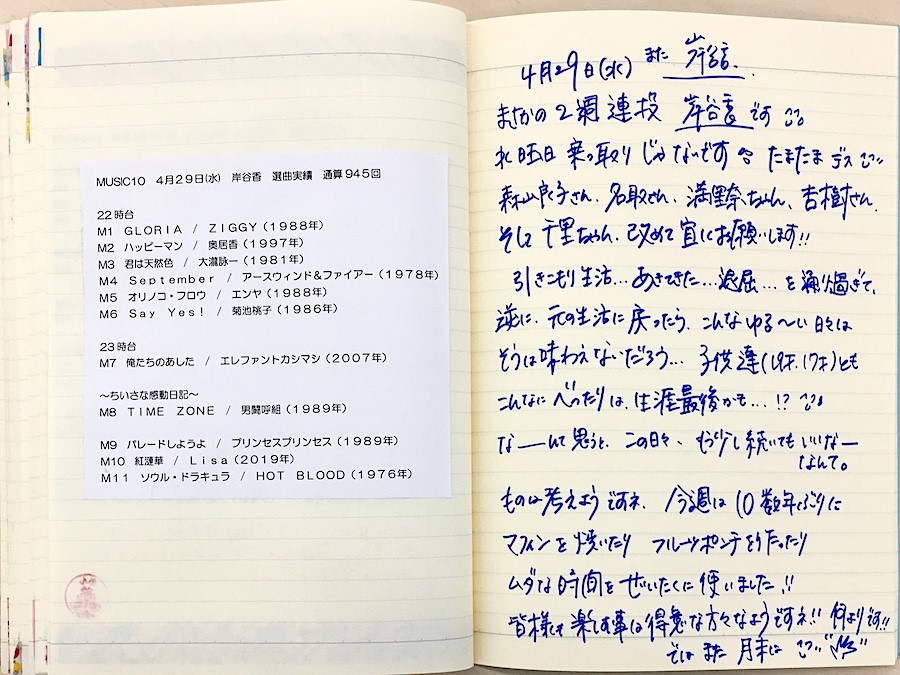 MUSIC10 4月29日(水) 岸谷香 選曲実績 通算945回
22時台
M1 GLORIA / ZIGGY(1988年)
M2 ハッピーマン / 奥居香(1997年)
M3 君は天然色 / 大瀧詠一(1981年)
M4 September / アースウィンド&ファイアー(1978年)
M5 オリノコ・フロウ / エンヤ(1988年)
M6 Say Yes! / 菊池桃子(1986年)
23時台
M7 俺たちのあした / エレファントカシマシ(2007年)
~ちいさな感動日記~
M8 TIME ZONE / 男闘呼組(1989年)
M9 パレードしようよ / プリンセスプリンセス(1989年)
M10 紅漣華 / Lisa(2019年)
M11 ソウル・ドラキュラ / HOT BLOOD(1976年)
4月29日(水) また 岸谷香.
まさかの2週連投 岸谷香です
水曜日 乗っ取りじゃないです たまたまデス
森山良子さん、名取さん、満里奈ちゃん、吉樹さん、
そして千里ちゃん、改めて宜しくお願いします!!
引きこもり生活…あきてきた…退屈…を通り過ぎて、
逆に、元の生活に戻ったら、こんなゆる〜い日々は
そうは味わえないだろう… 子供達(19才、17才)とも
こんなにべったりは、生涯最後かも…!?
な——んて思うと、この日々、もう少し続いてもいいなー
なんて。
ものは考えようですネ. 今週は10数年ぶりに
マフィンを焼いたり フルーツポンチを作ったり
ムダな時間をぜいたくに使いました!!
皆様も楽しむ事は得意な方々なようですネ!! 何よりです!!
ではまた 月末に